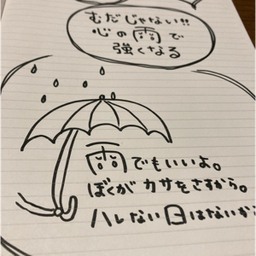 むだじゃない!!
心の雨で
強くなる
雨でもいいよ。
ぼくがカサをさすから。
ハレない日はないから